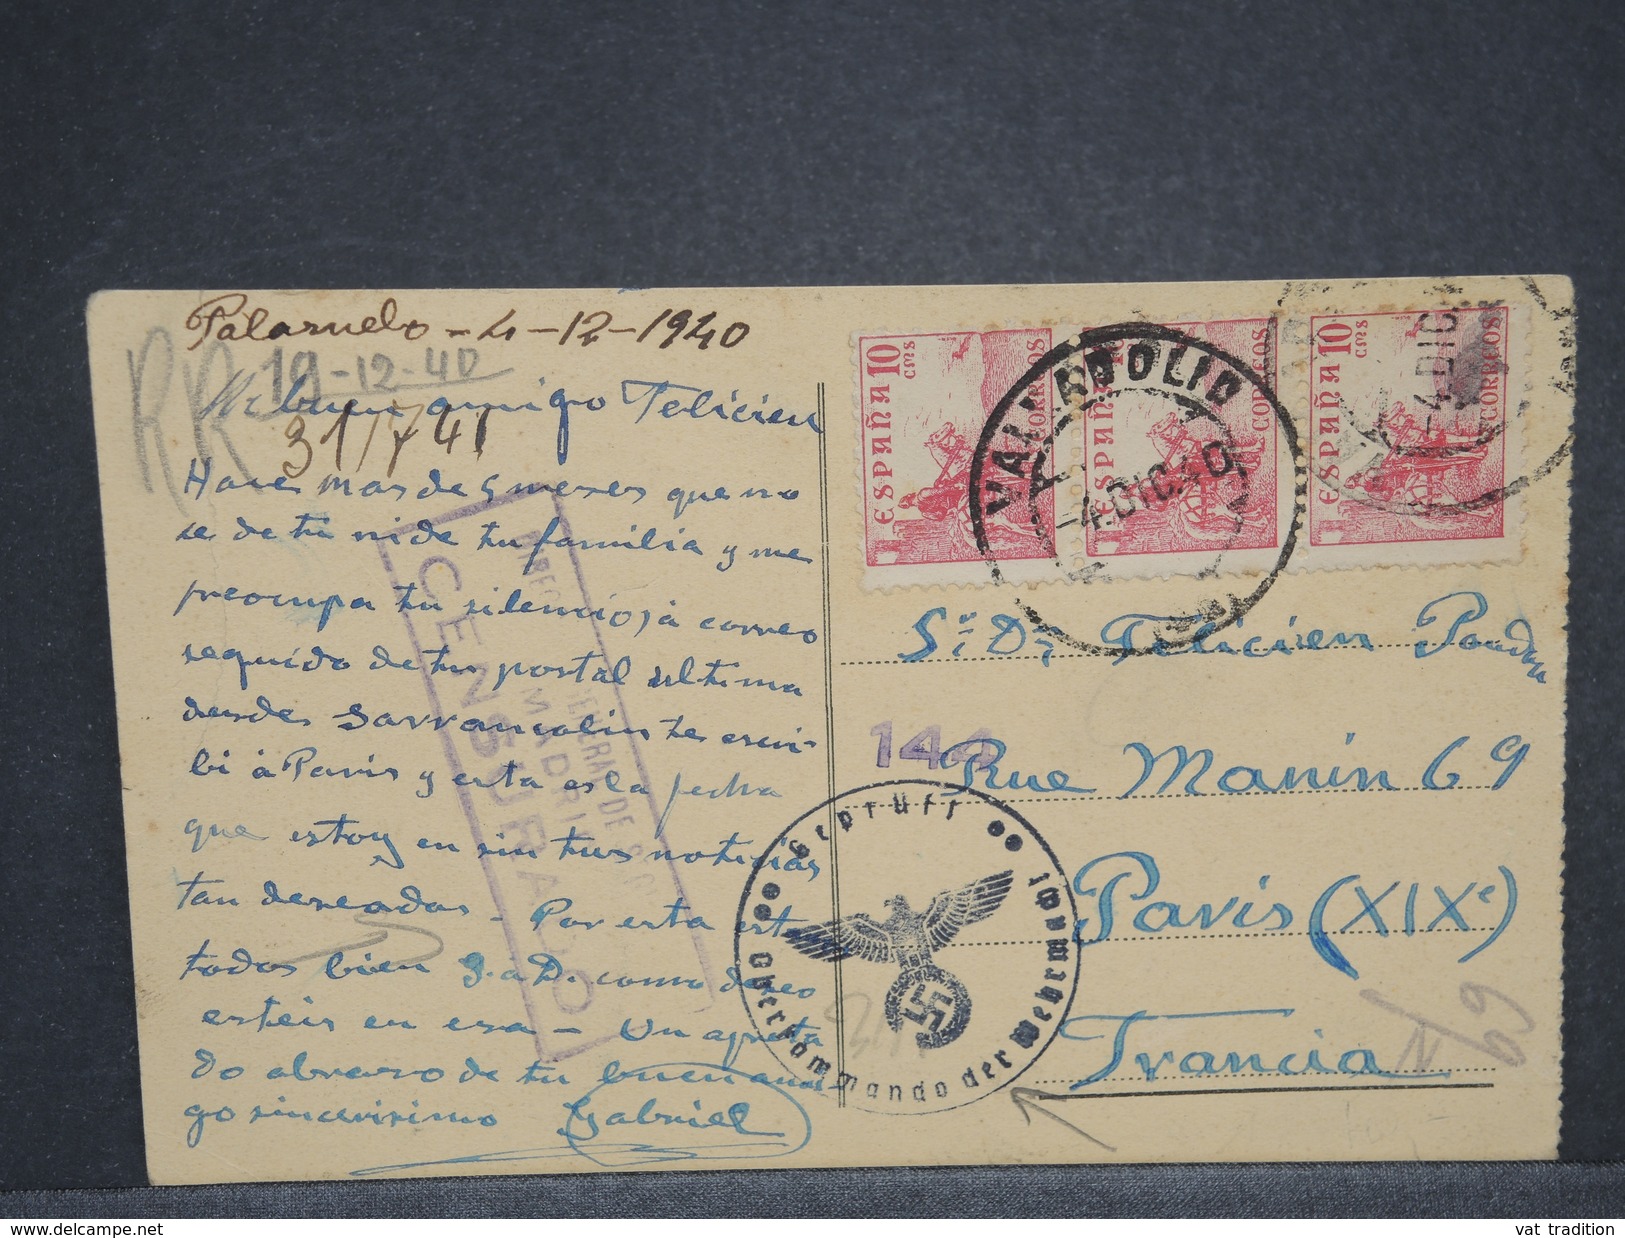 Palazuelo - 4 - 12 - 1940
RR 19-12-40
Mi buen amigo Felicien
31/7 41
Hace mas de 5 meses que no
se de ti ni de tu familia y me
preocupa tu silencio; à correo
seguido de tu postal ultima
desde Sarrancolin te escri-
bi à Paris y esta es la fecha
que estoy en sin tus noticias
tan deseadas - Por esta estamos
todos bien g. a D. como deseo
esteis en esa - Un apreta
do abrazo de tu buen ami
go sincerisimo Gabriel
DIRECCION GENERAL DE
MADRID
CENSURADO
ESPAÑA 10 cms CORREOS
ESPAÑA CORREOS
ESPAÑA 10 cms CORREOS
VALLADOLID
-4.DIC.40
-4.DIC
Sr. Dn Felicien
144
Rue Manin 69
Paris (XIXe)
Francia
Geprüft
Oberkommando der Wehrmacht
69
delcampe.net
vat tradition